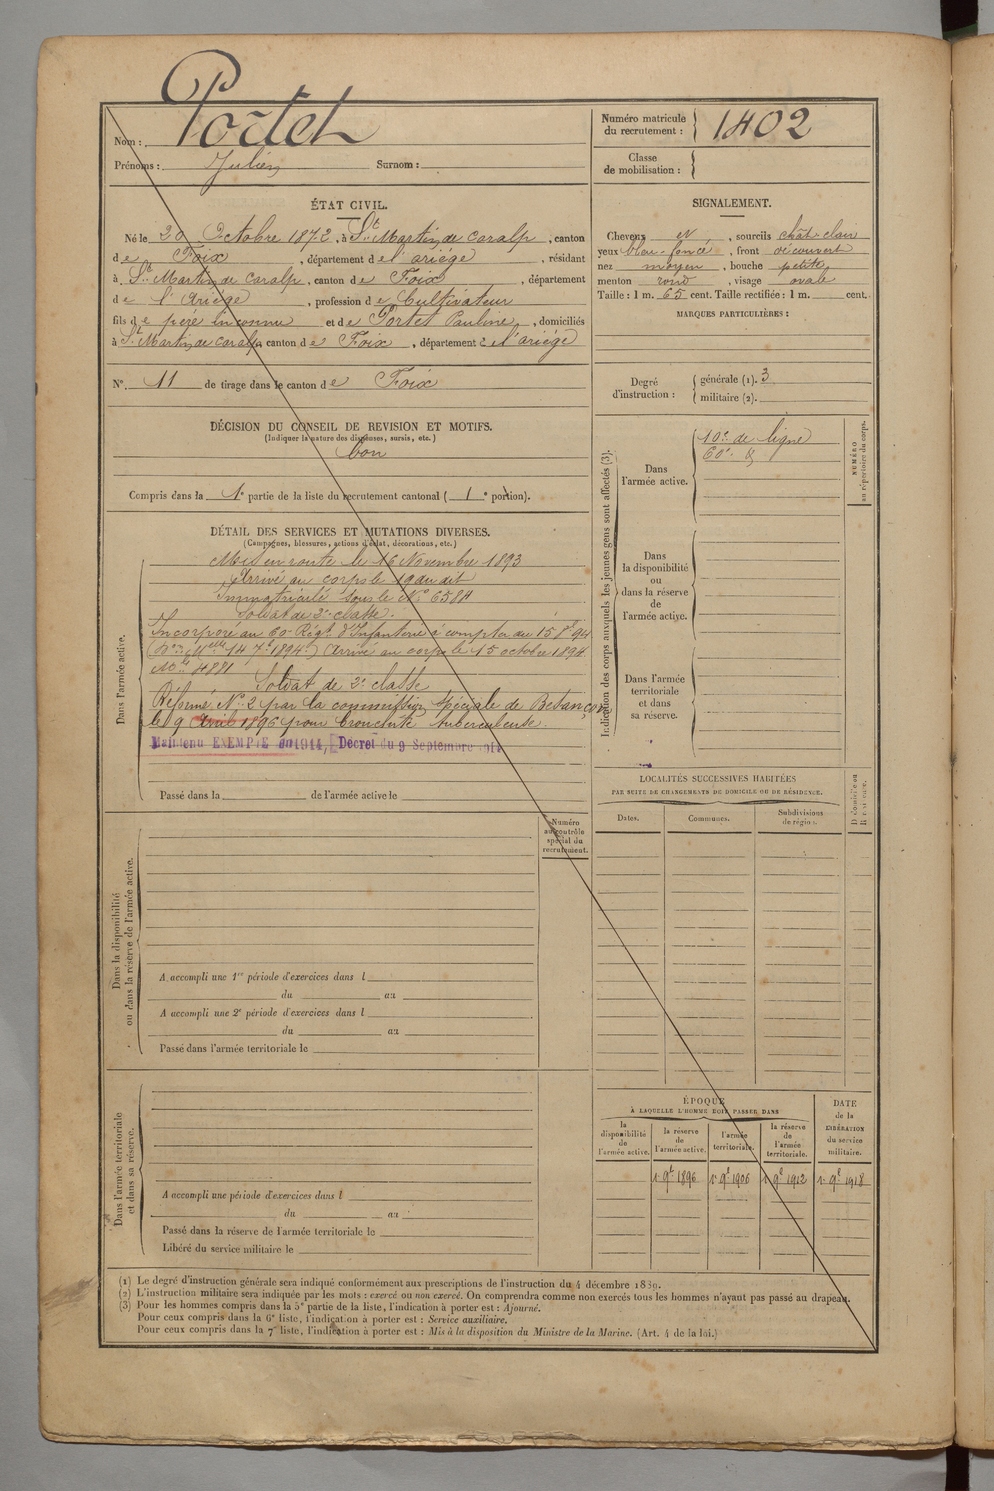 Nom : Portet
Prénoms : Julien Surnom :
Numéro matricule du recrutement : 1402
Classe de mobilisation :
ÉTAT CIVIL.
Né le 20 Octobre 1872, à St Martin de Caralp, canton
de Foix, département de l'ariège, résidant
à St Martin de Caralp, canton de Foix, département
de l'Ariège, profession de Cultivateur
fils de père inconnu et de Portet Pauline, domiciliés
à St Martin de Caralp, canton de Foix, département de l'ariège
N° 11 de tirage dans le canton de Foix
DÉCISION DU CONSEIL DE REVISION ET MOTIFS.
(Indiquer la nature des dispenses, sursis, etc.)
bon
Compris dans la 1e partie de la liste du recrutement cantonal (1e portion).
DÉTAIL DES SERVICES ET MUTATIONS DIVERSES.
(Campagnes, blessures, actions d'éclat, décorations, etc.)
Dans l'armée active.
Mis en route le 16 Novembre 1893
Arrivé au corps le 19 du dit
Immatriculé sous le N° 6584
Soldat de 2e classe.
Incorporé au 60e Régt d'Infanterie à compter du 15 8bre 94
(Don Melle 14 7bre 1894) Arrivé au corps le 15 octobre 1894
No 4881
Soldat de 2e classe
Réformé N° 2 par la commission spéciale de Besançon
le 9 Avril 1896 pour bronchite tuberculeuse
Maintenu EXEMPTÉ en 1914, Décret du 9 Septembre 1914
Passé dans la de l'armée active le
SIGNALEMENT.
Cheveux et, sourcils chât-clair
yeux bleu-foncé, front découvert
nez moyen, bouche petite
menton rond, visage ovale
Taille : 1 m. 65 cent. Taille rectifiée : 1 m. cent.
MARQUES PARTICULIÈRES :
Degré d'instruction : générale (1). 3
militaire (2).
Indication des corps auxquels les jeunes gens sont affectés (3).
Dans l'armée active.
10e de ligne
60e
NUMÉRO au répertoire du corps.
Dans la disponibilité ou dans la réserve de l'armée active.
Dans l'armée territoriale et dans sa réserve.
LOCALITÉS SUCCESSIVES HABITÉES
PAR SUITE DE CHANGEMENTS DE DOMICILE OU DE RÉSIDENCE.
Dates. Communes. Subdivisions de région.
Dans la disponibilité ou dans la réserve de l'armée active.
Numéro au contrôle spécial du recrutement.
A accompli une 1re période d'exercices dans l
du au
A accompli une 2e période d'exercices dans l
du au
Passé dans l'armée territoriale le
Dans l'armée territoriale et dans sa réserve.
A accompli une période d'exercices dans l
du au
Passé dans la réserve de l'armée territoriale le
Libéré du service militaire le
ÉPOQUE
À LAQUELLE L'HOMME DOIT PASSER DANS
la disponibilité de l'armée active. la réserve de l'armée active. l'armée territoriale. la réserve de l'armée territoriale.
DATE de la LIBÉRATION du service militaire.
1er 9bre 1896 1er 9bre 1906 1er 9bre 1912 1er 9bre 1918
(1) Le degré d'instruction générale sera indiqué conformément aux prescriptions de l'instruction du 4 décembre 1889.
(2) L'instruction militaire sera indiquée par les mots : exercé ou non exercé. On comprendra comme non exercés tous les hommes n'ayant pas passé au drapeau.
(3) Pour les hommes compris dans la 5e partie de la liste, l'indication à porter est : Ajourné.
Pour ceux compris dans la 6e liste, l'indication à porter est : Service auxiliaire.
Pour ceux compris dans la 7e liste, l'indication à porter est : Mis à la disposition du Ministre de la Marine. (Art. 4 de la loi.)